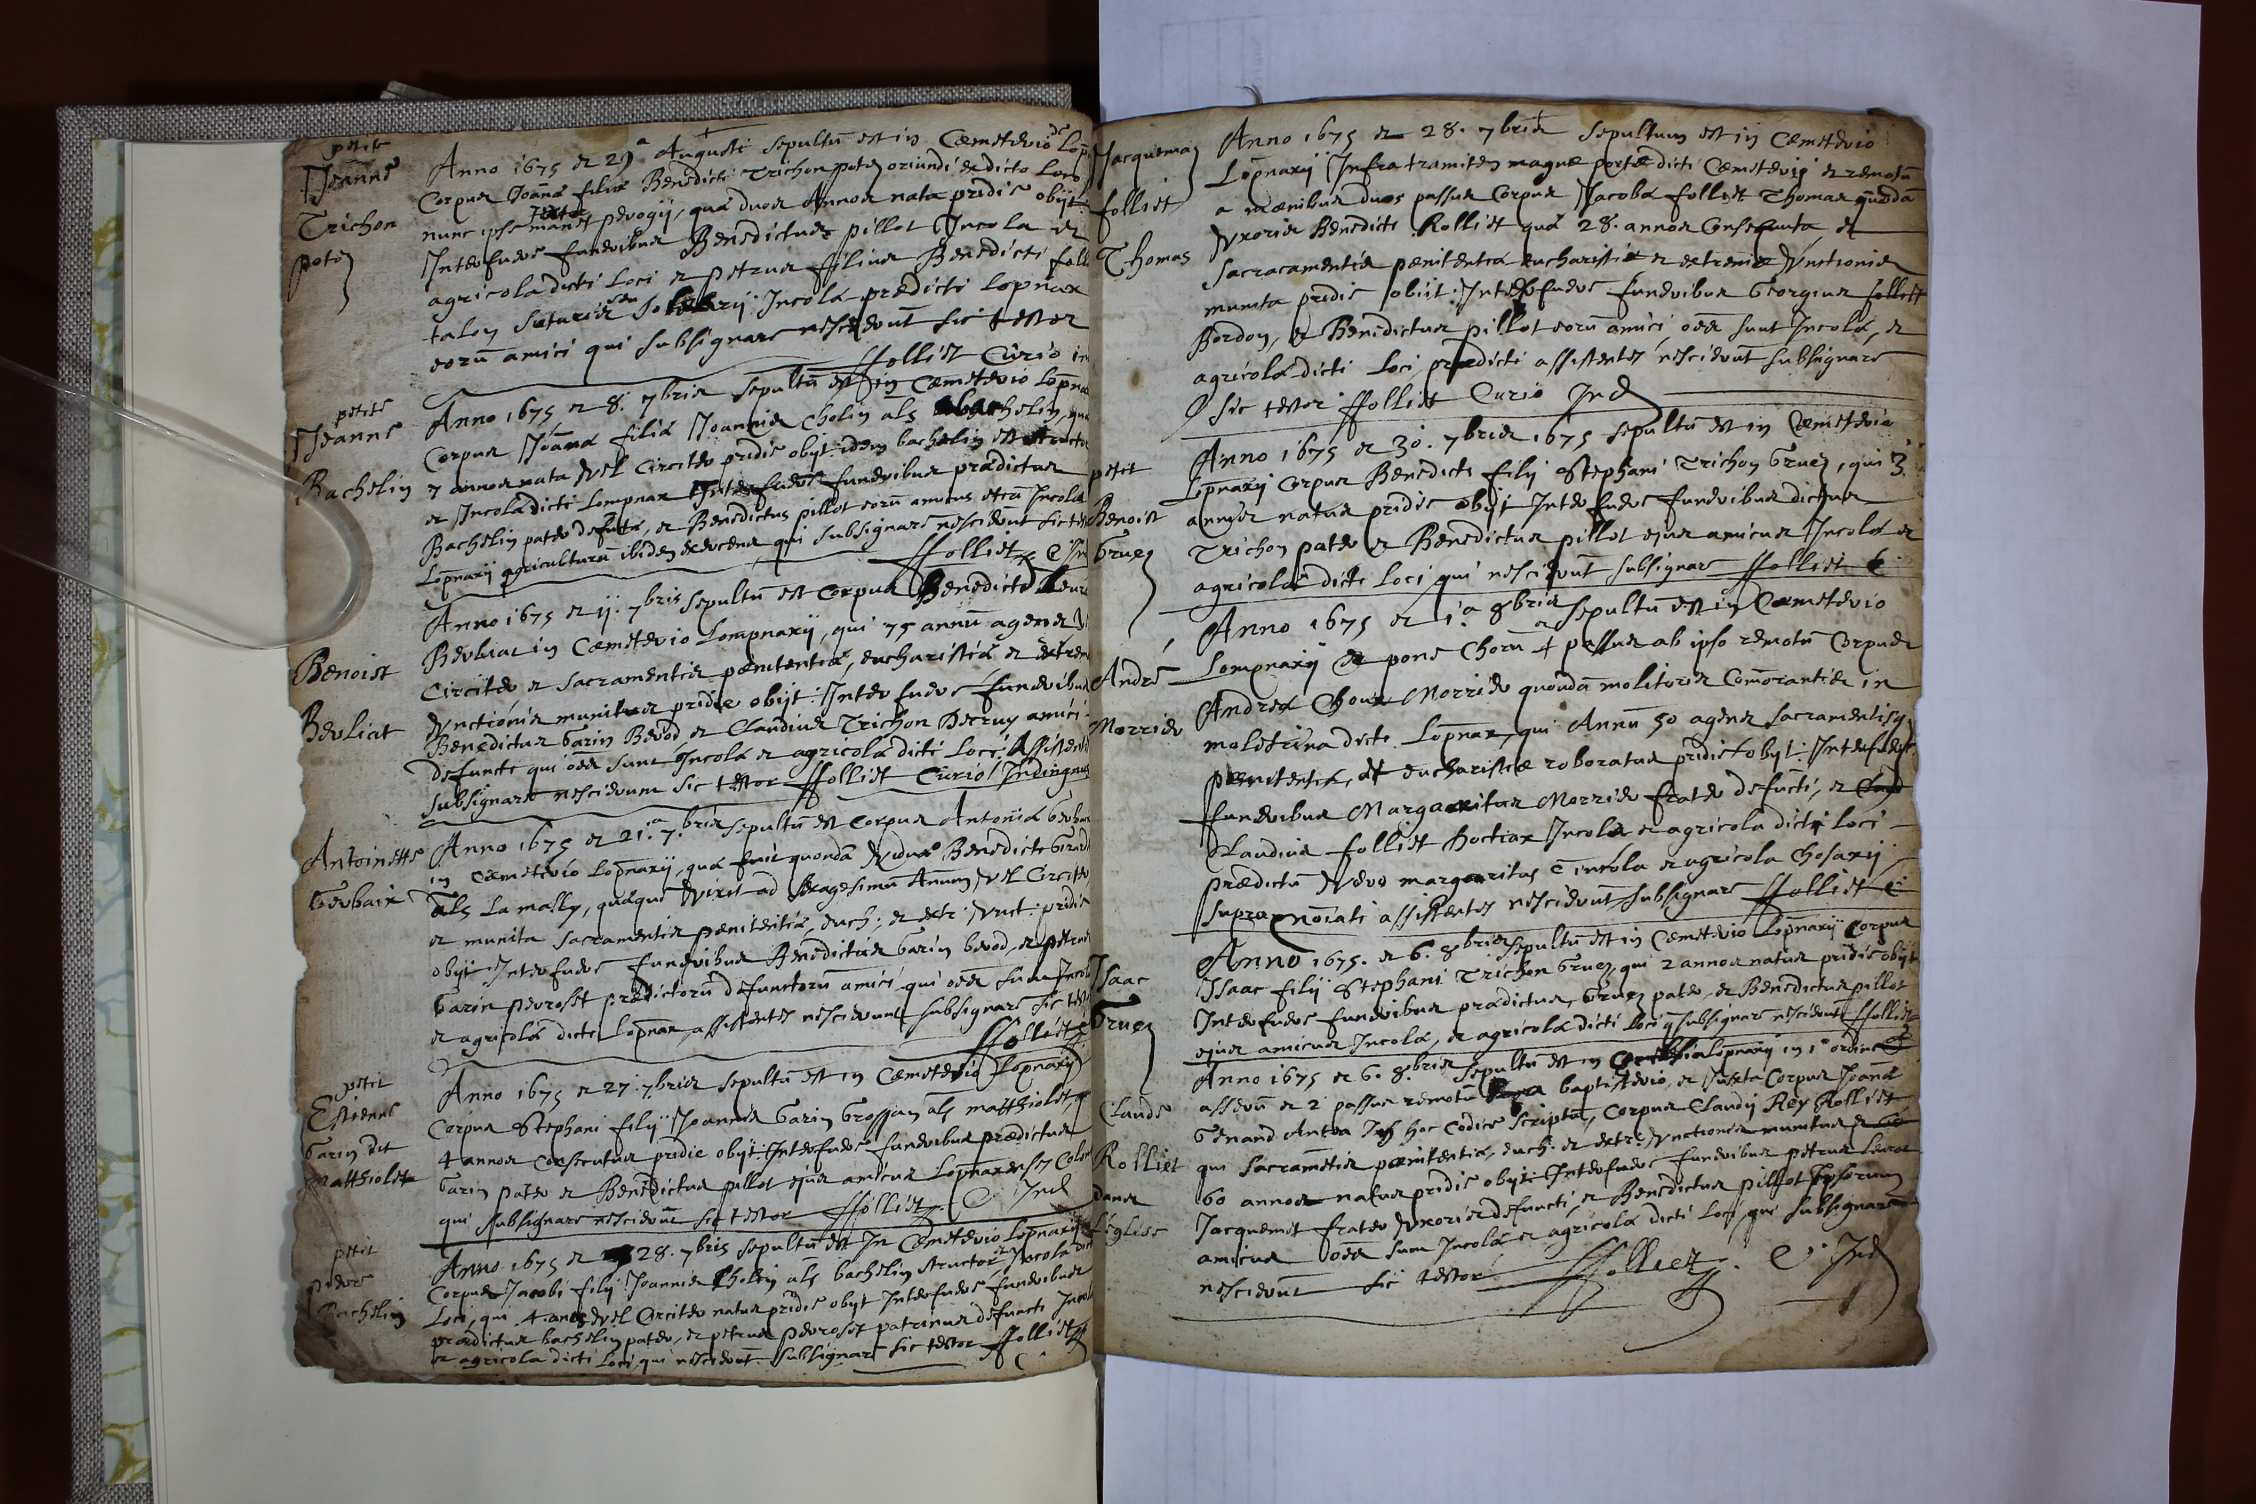 petit
Jeanne
Trichon
poten
Anno 1675 et 29a Augusti sepultū est in Cæmeterio de Lopn
Corpus Joanæ filiæ Benedicti Trichon poten oriundi ex dicto Loco
nunc ipse manet perogij, quæ duos Annos nata pridie obijt
Interfuere funeribus Benedictus pillot Incola et
agricola dicti Loci et petrus filius Benedicti foll
talon suturis seu Incola prædicti Lopnax
eorū amici qui subsignare nescierunt sic testor
ffolliet Curio in
petite
Jeanne
Bachelin
Anno 1675 et 8. 7bris sepultū est in Cæmeterio Lopna
Corpus Joāna filia Joannis Cholin als bachelin, quæ
7 annos nata vel Circiter pridie obijt idem bachelin est structor
et Incola dicti Lompnax Interfuere funeribus prædictus
Bachelin pater defūtæ, et Benedictus pillot eorū amicus etiā Incola
Lopnaxij agriculturā ibidem exercens qui subsignare nescierunt sic test
ffolliet C In
Benoist
Berliat
Anno 1675 et 11. 7bris sepultū est Corpus Benedicti
Berliat in Cæmeterio Lompnaxij, qui 75 annū agens v
Circiter et sacramentis pænitentiæ, eucharistiæ et extrem
vnctionis munitus pridie obijt: Interfuere funeribus
Benedictus Garin Berod et Claudius Trichon Decruy amici
defuncti qui oēs sunt Incolæ et agricolæ dicti Loci Assistentes
subsignare nescierunt sic testor ffolliet Curio Indingnus
Antoinette
Gerbaix
Anno 1675 et 21.a 7.bris sepultū est Corpus Antoniæ Gerbaix
in Cæmeterio Lopnaxij, quæ fuit quondā vidua Benedicti Girod
als La mally, quæque vixit ad sexagesimū Annum vel Circiter
et munita sacramentis pænitentiæ, euch: et extr: vnct: pridie
obijt Interfuere funeribus Benedictus Garin berod, et petrus
Garin perroset prædictorū defunctorū amici qui oēs sunt Incolæ
et agricolæ dicti Lopnax, assistentes nescierunt subsignare sic testor
ffolliet
petit
Estienne
Garin dit
matthiolet
Anno 1675 et 27. 7bris sepultū est in Cæmeterio Lopnaxij
Corpus Stephani filij Joannis Garin Grossjan als matthiolet, q
4 annos Consecutus pridie obijt. Interfuere funeribus prædictus
Garin pater et Benedictus pillot ejus amicus Lopnaxenses Colon
qui subsignare nescierunt sic testor ffolliet. C. Ind
petit
pierre
Bachelin
Anno 1675 et 28. 7bris sepultū est In Cæmeterio Lopnaxij
Corpus Jacobi filij Joannis Cholin als bachelin structor et Incola dicti
Loci, qui 4. anos vel Circiter natus pridie obijt Interfuere funeribus
prædictus bachelin pater, et petrus perroset patrinus defuncti Incola
et agricola dicti Loci, qui nescierunt subsignare sic testor ffolliet
Jacquema
folliet
Thomas
Anno 1675 et 28. 7bris sepultum est in Cæmeterio
Lopnaxij Infra tramiten magnæ portæ dicti Cæmeterij et remotū
a mænibus duos passus Corpus Jacobæ folliet Thomas quōdā
vxoris Benedicti Rolliet quæ 28. annos Consecuta, et
sacracamentis pænitentiæ eucharistiæ et extremæ vnctionis
munita pridie obiit: Interfuere funeribus Georgius folliet
Bordon, et Benedictus pillot eorū amici, oēs sunt Incolæ, et
agricolæ dicti Loci prædicti assistentes nescierunt subsignare
sic testor ffolliet Curio Ind
petit
Benoist
Gruez
Anno 1675 et 30. 7bris 1675 sepultū est in Cæmeterio
Lopnaxij Corpus Benedicti filij Stephani Trichon Gruez, qui 3
annos natus pridie obijt Interfuere funeribus dictus
Trichon pater et Benedictus pillot ejus amicus Incolæ et
agricolæ dicti Loci, qui nescierunt subsignare ffolliet C
André
Morrier
Anno 1675 et 1.a 8bris sepultū est in Cæmeterio
Lompnaxij et pone Chorū 4 passus ab ipso remotū Corpus
Andreæ Morrier quondā molitoris Comorantis in
moletrina dicti Lopnax, qui Annū 50 agens sacramentis
pænitentiæ, et eucharistiæ roboratus pridie obijt: Interfuere
funeribus Margaritus Morrier frater defuncti, et
Claudius folliet Doctiax Incola et agricola dicti Loci
prædictū vero margaritus incola et agricola Chosaxij
supra noīati assistentes nescierunt subsignare ffolliet C
Isaac
Gruez
Anno 1675. et 6. 8bris sepultū est in Cæmeterio Lopnaxij Corpus
Isaac filij Stephani Trichon Gruez, qui 2 annos natus pridie obijt
Interfuere funeribus prædictus, Gruez pater, et Benedictus pillot
ejus amicus Incolæ, et agricolæ dicti Loci q subsignare nescierunt ffolliet
Claude
Rolliet
dans
l'église
Anno 1675 et 6. 8.bris sepultū est in Lopnaxij in 1o ordine
asserū et 2 passus remotū baptisterio, et Juxta Corpus Joanæ
Genand Antea In hoc Codice scriptū, Corpus Claudij Rey Rolliet
qui sacramētis pænitentiæ, euch: et extr: vnctionis munitus et
60 annos natus pridie obijt: Interfuere funeribus petrus
Jacquemet frater vxoris defuncti, et Benedictus pillot ipsorum
amicus oēs sum Incolæ et agricolæ dicti Loci, qui subsignare
nescierunt sic testor ffolliet. C. Ind